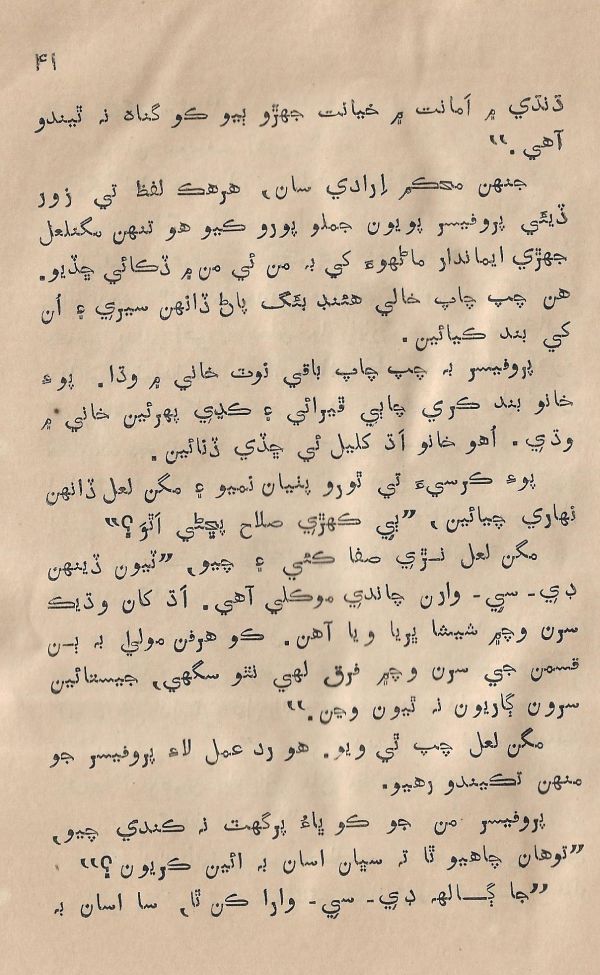 ۴۱
ڌنڌي ۾ اَمانت ۾ خيانت جهڙو ٻيو ڪو گناه نہ ٿيندو
آهي.“
جنهن محڪم اِرادي سان، هرهڪ لفظ تي زور
ڏيئي پروفيسر پويون جملو پورو ڪيو هو تنهن مگنلعل
جهڙي ايماندار ماڻهوءَ کي بہ من ئي من ۾ ڏڪائي ڇڏيو.
هن چپ چاپ خالي هئنڊ بئگ پاڻ ڏانهن سيري ۽ اُن
کي بند ڪيائين.
پروفيسر بہ چپ چاپ باقي نوٽ خاني ۾ وڌا. پوءِ
خانو بند ڪري چاٻي ڦيرائي ۽ ڪڍي پهرئين خاني ۾
وڌي. اُهو خانو اَڌ کليل ئي ڇڏي ڏنائين.
پوءِ ڪرسيءَ تي ٿورو پٺيان نميو ۽ مگن لعل ڏانهن
نهاري چيائين، ”ٻي ڪهڙي صلاح پڇڻي اَٿوَ؟“
مگن لعل نــڙي صفا ڪئي ۽ چيو، ”ٽيون ڏينهن
ڊي- سي- وارن چاندي موڪلي آهي. اَڌ کان وڌيڪ
سرن وچ۾ شيشا ڀريا ويا آهن. ڪو هرفن مولا بہ ٻــن
قسمن جي سرن وچ۾ فرق لهي نٿو سگهي، جيستائين
سرون ڳاريون نہ ٿيون وڃن.“
مگن لعل چپ ٿي ويو. هو رد عمل لاءِ پروفيسر جو
منهن تڪيندو رهيو.
پروفيسر من جو ڪو ڀاءُ پرگهٽ نہ ڪندي چيو،
”توهان چاهيو ٿا تہ سڀان اسان بہ ائين ڪريون؟“
”جا ڳــالهہ ڊي- سي- وارا ڪن ٿا، سا اسان بہ